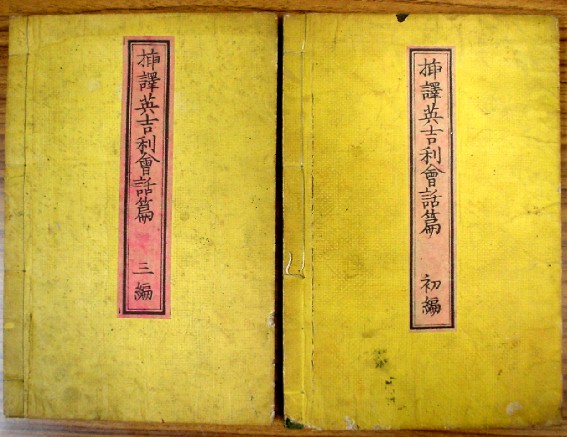 挿譯英吉利會話篇 初編
挿譯英吉利會話篇 三編